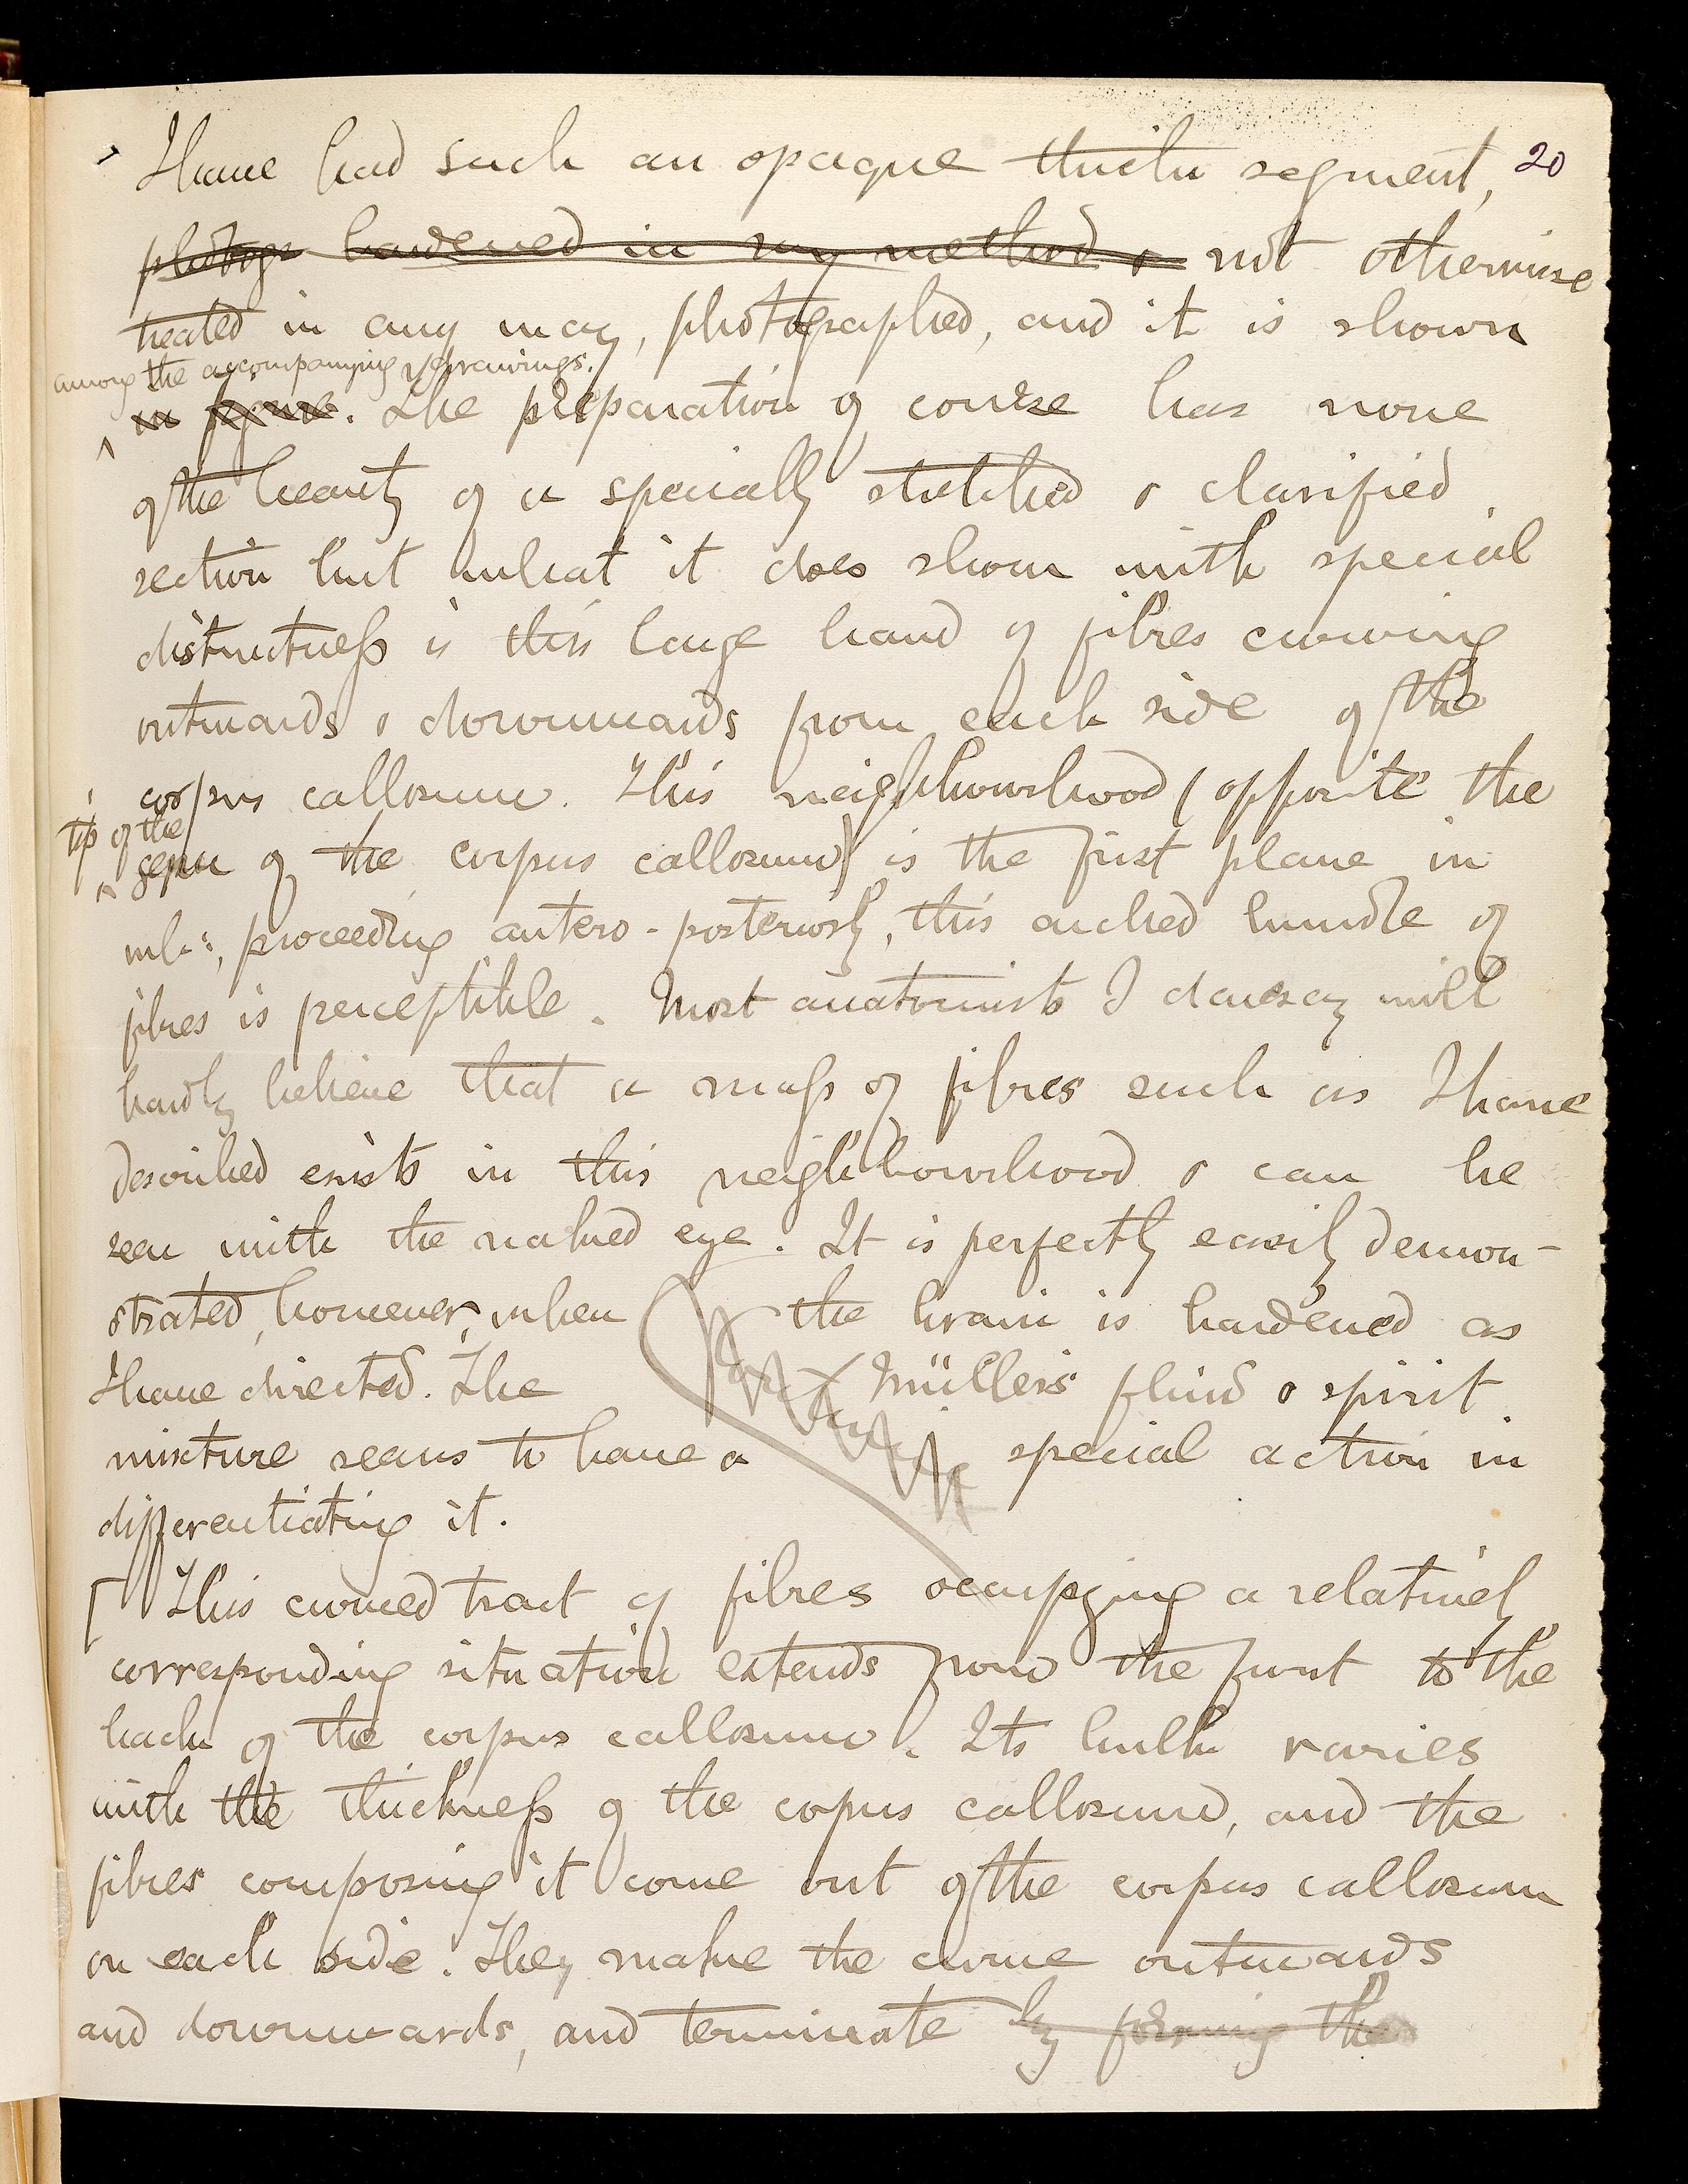 I have had such an opaque thick segment, 20
photogr hardened in my method & not otherwise
treated in any way, photographed, and it is shown
among the accompanying drawings.
in figure. The preparation of course has none
of the beauty of a specially stretched & clarified
section but what it does show with special
distinctness is this large band of fibres curving
outwards & downwards from each side of the
corpus callosum. This neighbourhood (opposite the
tip of the
genu of the corpus callosum) is the first plane in
wh:, proceeding antero-posteriorly, this arched bundle of
fibres is perceptible. Most anatomists I daresay will
hardly believe that a mass of fibres such as I have
described exists in this neighbourhood & can be
seen with the naked eye. It is perfectly easily demon-
strated, however, when the brain is hardened as
I have directed. The Müller's fluid & spirit
mixture seems to have a special action in
differentiating it.
[ This curved tract of fibres occupying a relatively
corresponding situation extends from the front to the
back of the corpus callosum. Its bulk varies
with the thickness of the corpus callosum, and the
fibres composing it come out of the corpus callosum
on each side. They make the curve outwards
and downwards, and terminate by forming the